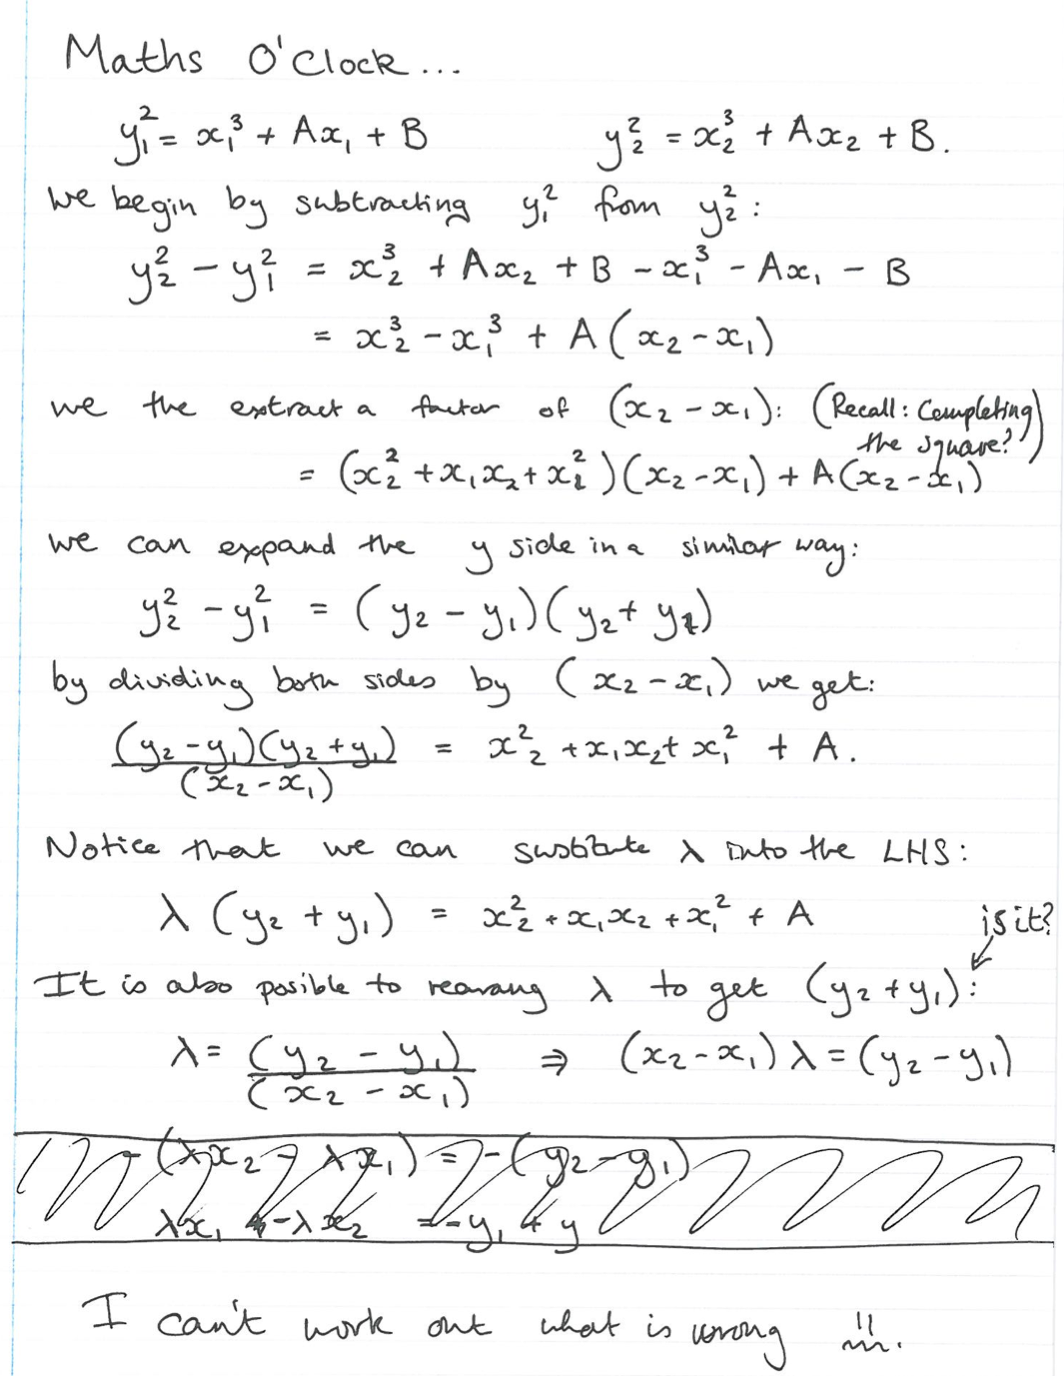 Maths O'Clock...
y₁² = x₁³ + Ax₁ + B        y₂² = x₂³ + Ax₂ + B.
we begin by subtracting y₁² from y₂² :
y₂² - y₁² = x₂³ + Ax₂ + B - x₁³ - Ax₁ - B
= x₂³ - x₁³ + A(x₂ - x₁)
we the extract a factor of (x₂ - x₁): (Recall: Completing
the square?)
= (x₂² + x₁x₂ + x₁²)(x₂ - x₁) + A(x₂ - x₁)
we can expand the y side in a similar way:
y₂² - y₁² = (y₂ - y₁)(y₂ + y₁)
by dividing both sides by (x₂ - x₁) we get:
(y₂ - y₁)(y₂ + y₁) = x₂² + x₁x₂ + x₁² + A.
(x₂ - x₁)
Notice that we can sustitute λ into the LHS:
λ (y₂ + y₁) = x₂² + x₁x₂ + x₁² + A
is it?
It is also posible to rearrang λ to get (y₂ + y₁):
λ = (y₂ - y₁) ⇒ (x₂ - x₁) λ = (y₂ - y₁)
(x₂ - x₁)
-(λx₂ - λx₁) = -(y₂ - y₁)
λx₁ - λx₂ = -y₁ + y
I can't work out what is wrong